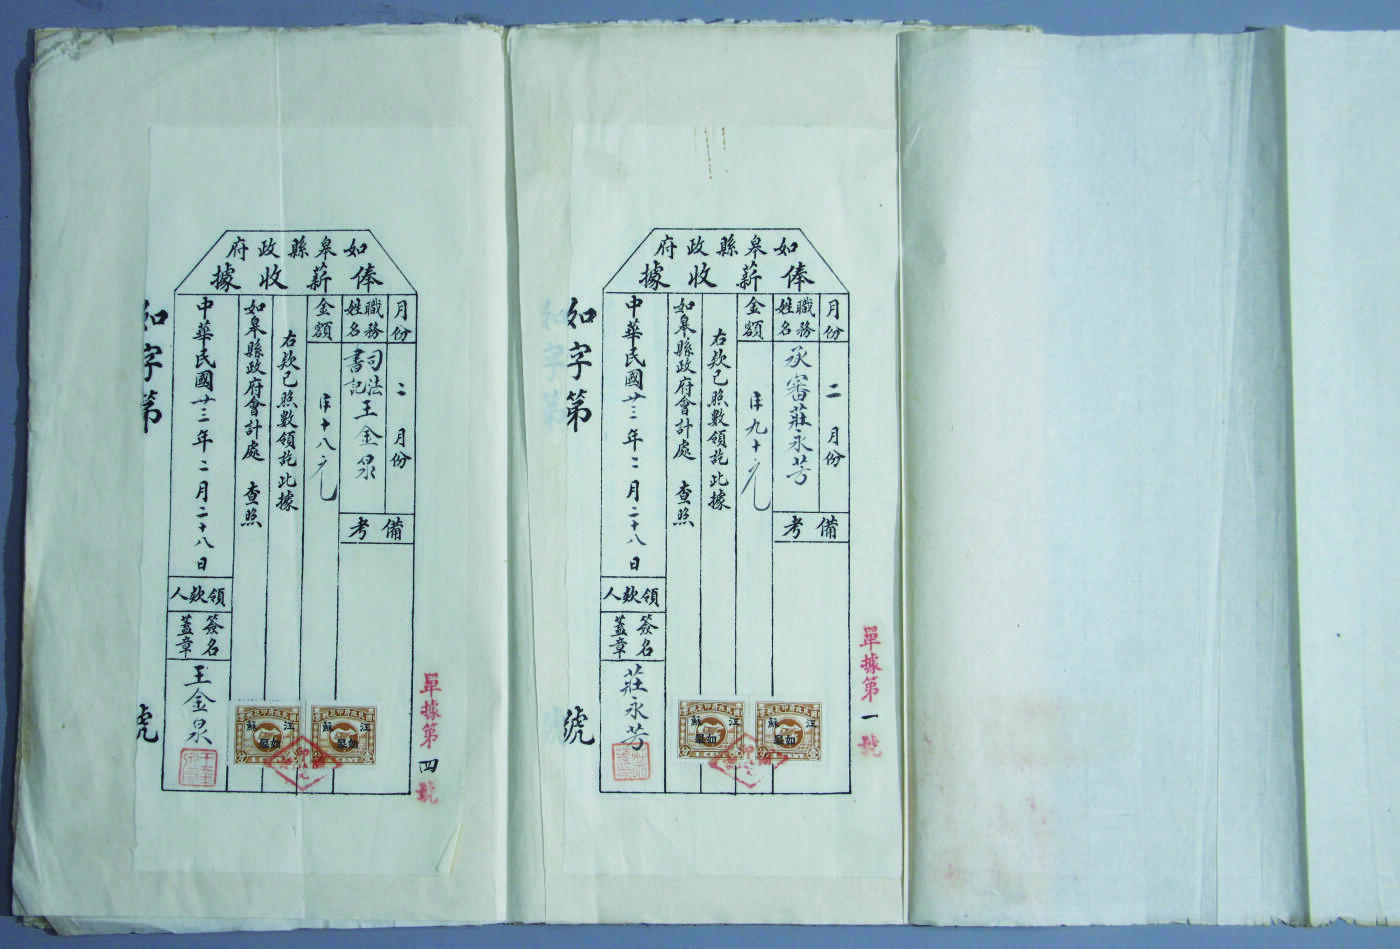 如皋縣政府
俸薪收據
月份
二月份
職務
姓名
承審莊永芳
備考
金額
洋九十元
右款已照數領訖此據
如皋縣政府會計處 查照
中華民國廿三年二月二十八日
領款人
簽名
蓋章
莊永芳
如字第 號
單據第一號
江蘇
如皋
江蘇
如皋
如皋縣政府
俸薪收據
月份
二月份
職務
姓名
司法
書記
王金泉
備考
金額
洋十八元
右款已照數領訖此據
如皋縣政府會計處 查照
中華民國廿三年二月二十八日
領款人
簽名
蓋章
王金泉
如字第 號
單據第四號
江蘇
如皋
江蘇
如皋